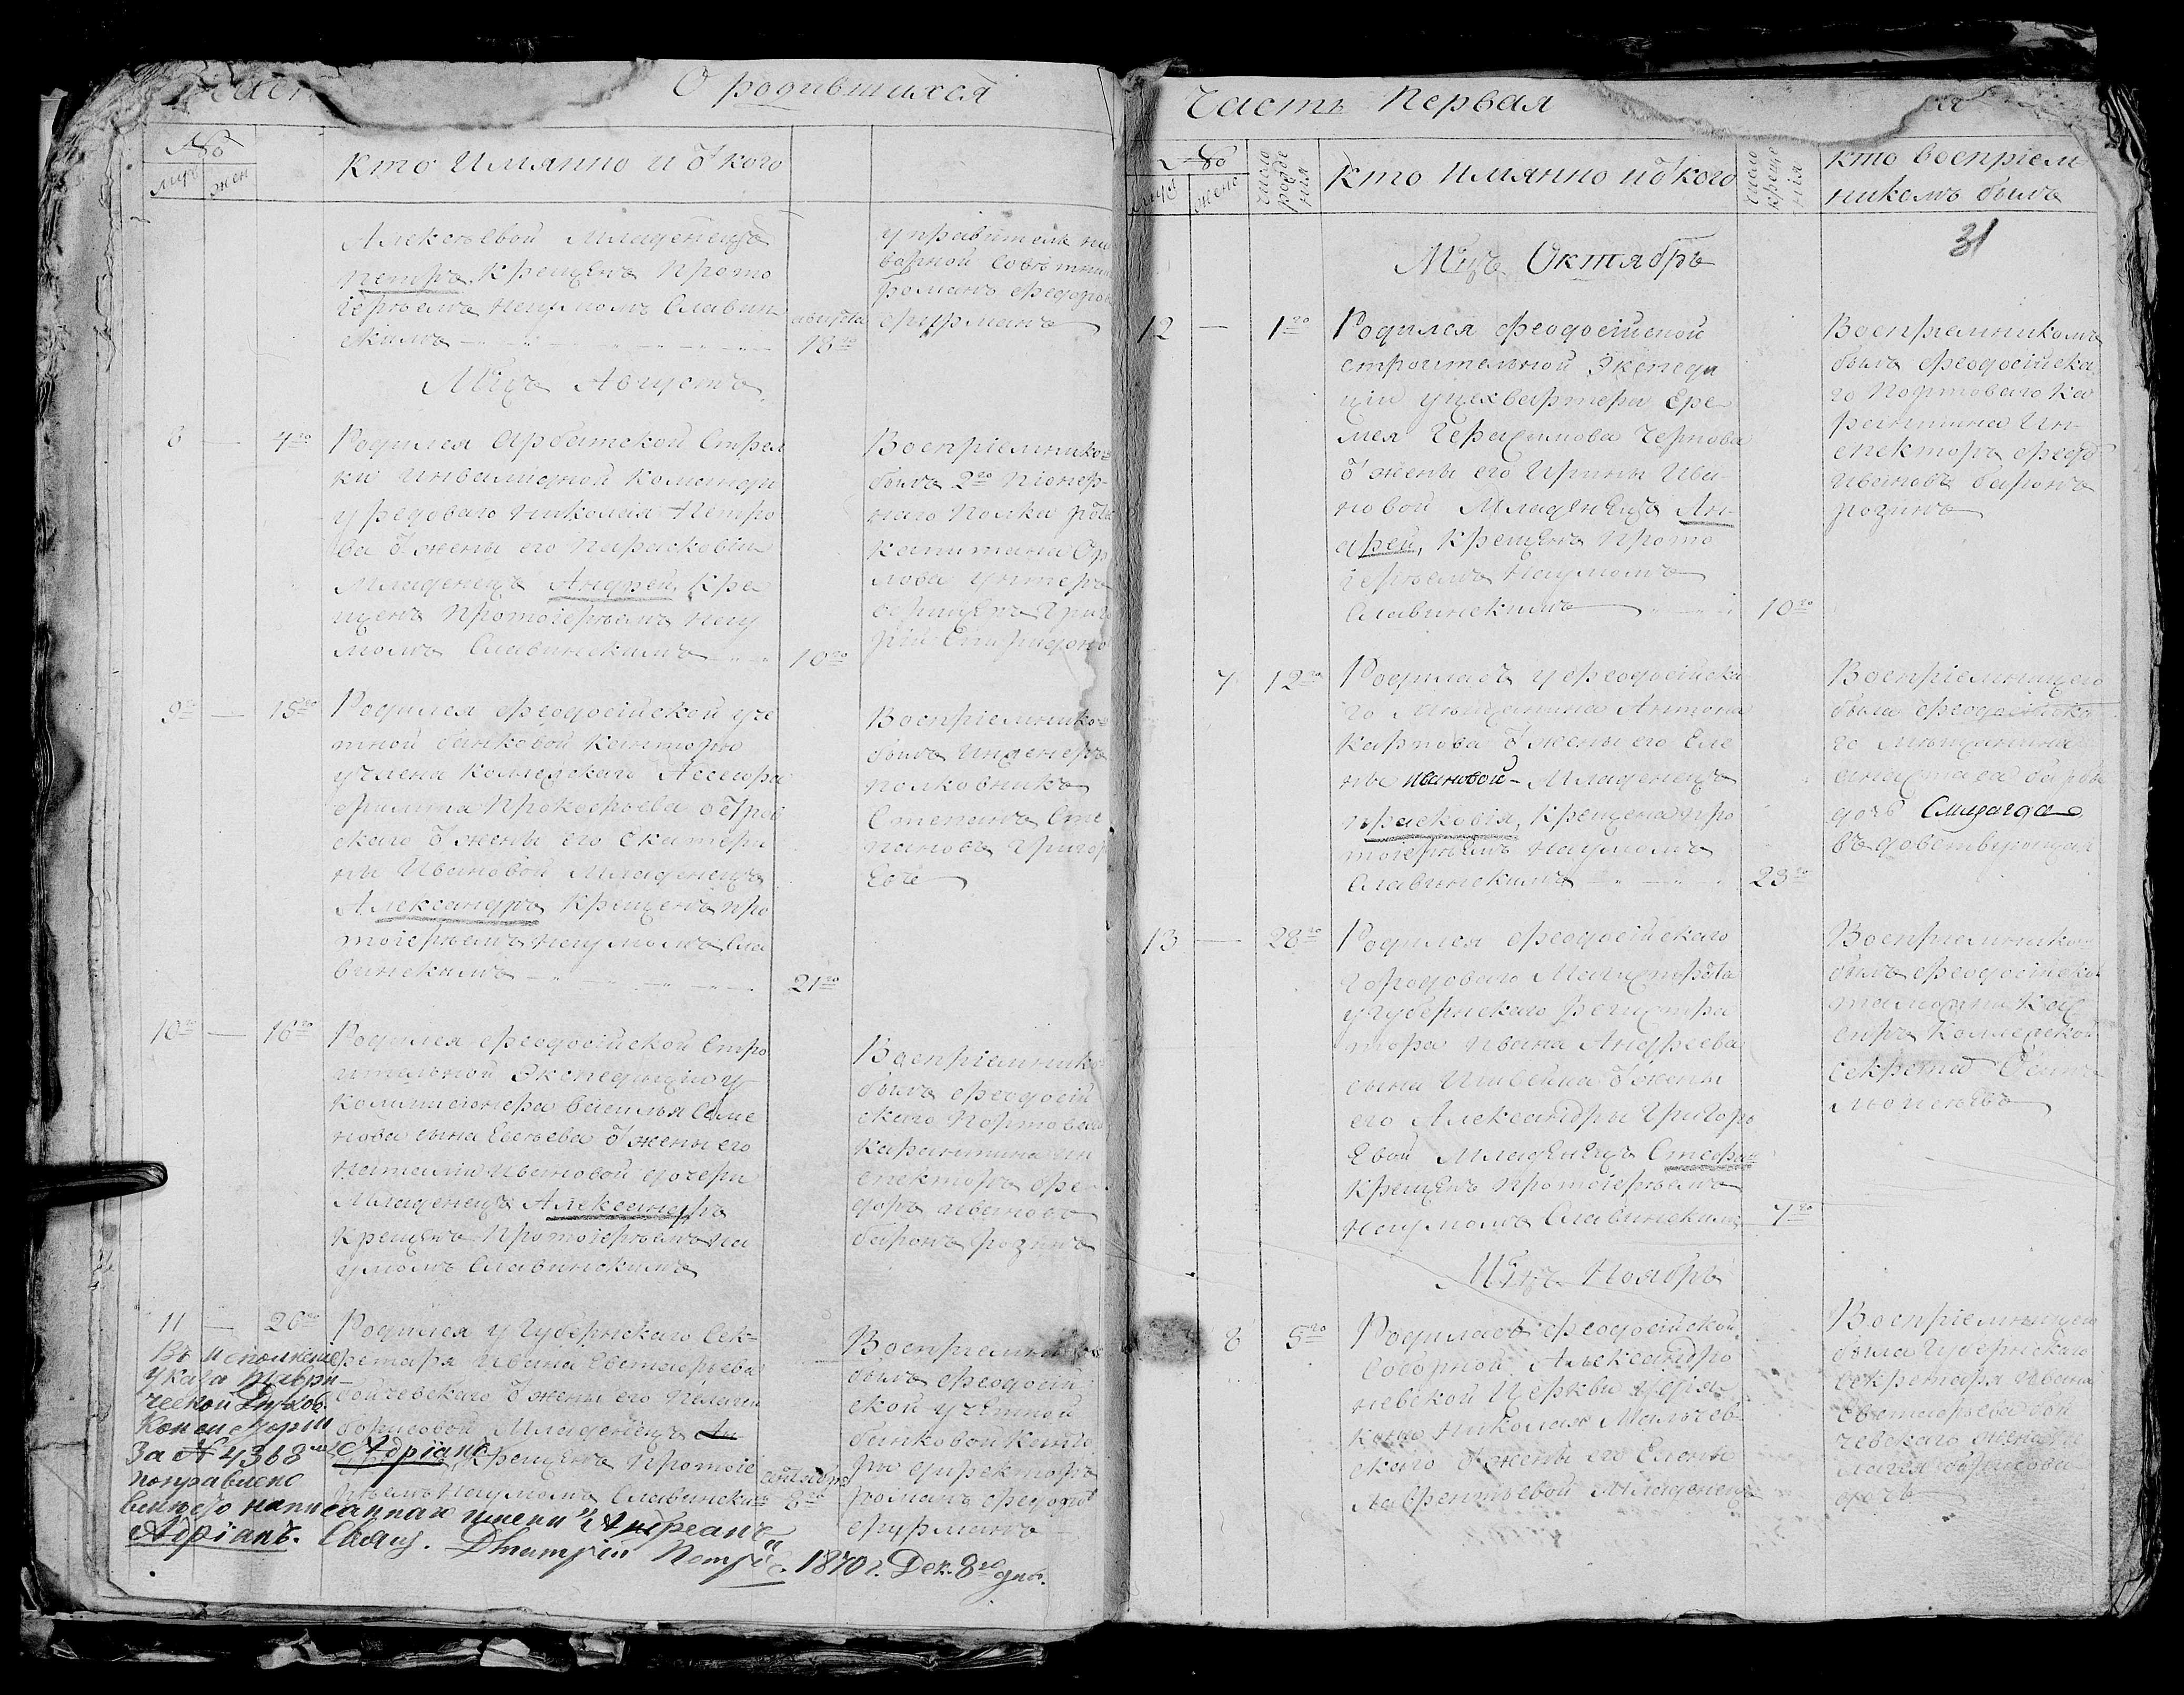 О родившихся
№
муж жен
кто имянно и от кого
Алексѣевой младенецъ
Петръ, крещенъ прото
іереемъ Наумомъ Славин
скимъ
августа
18го
управитель
совѣтник
романъ федоров
фурманъ
Мцъ Августъ
8 — 4го
Родился Арбатской Стрел
ки инвалидной команды
у редоваго Николая Петро
ва от жены его Параскевіи
младенецъ Андрей, кре
щенъ протоіереемъ Нау
момъ Славинскимъ
10го
Воспріемнико
былъ 2го Піонер
наго полка роты
капитана Ор
лова унтеръ
офицеръ Григо
рій Спиридоно
9й — 15го
Родился феодосійской уче
тной банковой канторы
у члена коллежскаго Ассесора
филипа Прокофьева
скаго от жены его Екатери
ны Ивановой младенецъ
Александръ крещенъ про
тоіереемъ Наумомъ Сла
винскимъ
21го
Воспріемнико
былъ инженеръ
полковникъ
Степанъ Сте
пановъ Григор
10й — 16го
Родился феодосійской Стро
ительной Экспедиціи у
коммисіонера Василья Семе
нова сына Евсѣева от жены его
Наталіи Ивановой дочери
младенецъ Александръ
крещенъ протоіереемъ На
умомъ Славинскимъ
Воспріемнико
былъ феодосій
скаго портоваго
карантина ин
спекторъ фе
доръ ивановъ
баронъ розинъ
11 — 26го
Родился у Губернскаго Сек
ретаря Ивана Евстафьева
Бойчевскаго от жены его Пелагеи
борисовой младенецъ Ан
Адріанъ, крещенъ протоіе
реемъ Наумомъ Славински
сентября
8го
Воспріемнико
былъ феодосій
ской учетной
банковой канто
ры директоръ
романъ федоровъ
фурманъ
Въ исполненіе
указа Таври
ческой Духов.
Консисторіи
за № 4368мъ
поправлено
вмѣсто написаннаго имени „Андреанъ„
Адріанъ. Свящ. Дмитрій 1870 г. Дек. 8го дня.
Часть Первая
31
№
муж жено
число рожде нія
кто имянно и от кого
число креще нія
кто воспріем
никомъ былъ
Мцъ Октябръ
12 — 1го
Родился феодосійской
строительной Экспеди
ціи у цехвартера Ере
мея Герасимова Чернова
от жены его Ирины Ива
новой младенецъ Ан
дрей, крещенъ прото
іереемъ Наумомъ
Славинскимъ
10го
Воспріемникомъ
былъ феодосійска
го портоваго ка
рантина ин
спекторъ федо
ивановъ баронъ
розинъ
7 12го
Родилась у феодосійска
го мѣщанина Антона
Карпова от жены его Еле
ны Ивановой младенецъ
Прасковія, крещена про
тоіереемъ Наумомъ
Славинскимъ
23го
Воспріемницею
была феодосійска
го мѣщанина
дочь Смарагда
13 — 28го
Родился феодосійскаго
городоваго магистрата
у губернскаго регистра
тора Ивана Андреева
сына Ившеина от жены
его Александры Григорь
евой младенецъ Стефан
крещенъ протоіереемъ
Наумомъ Славинскимъ
7го
Воспріемнико
былъ феодосійско
таможни кас
сиръ коллежской
секрета
Мцъ Ноябръ
8 5го
Родилась феодосійской
соборной Александро
невской церкви у діа
кона Николая Мальчев
скаго от жены его Елены
Лаврентьевой младенецъ
Воспріемницею
была Губернскаго
секретаря Ивана
Евстафьева Бой
чевскаго жена Пе
лагея борисова
дочь